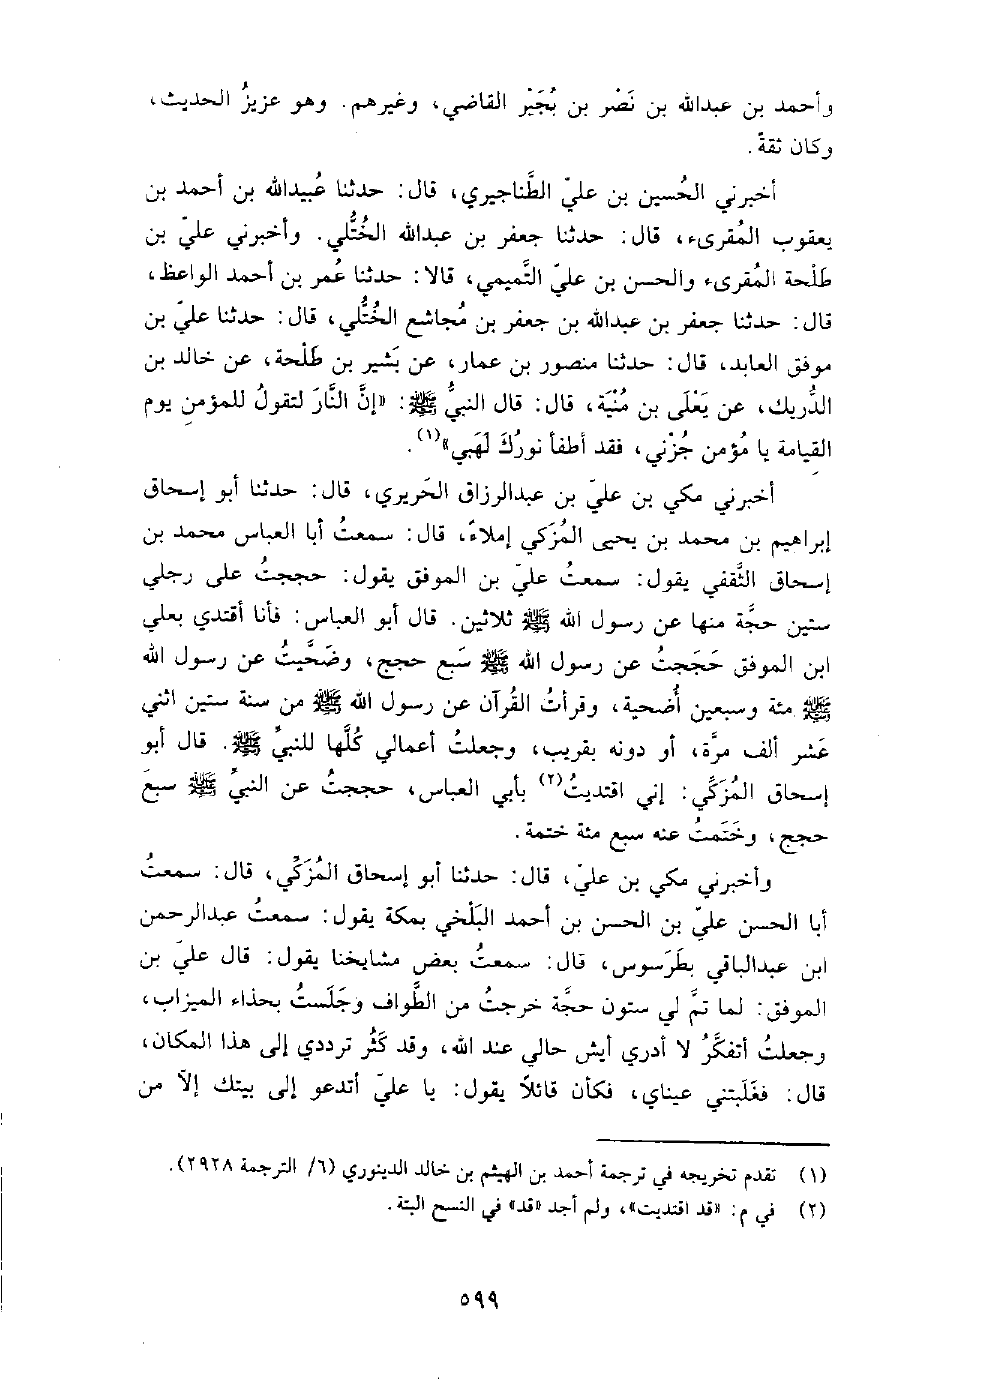 وأحمد بن عبدالله بن نَصْر بن بُجَيْر القاضي، وغيرهم. وهو عزيزُ الحديث،
وكان ثقةً.
أخبرني الحُسين بن عليّ الطَّناجيري، قال: حدثنا عُبيدالله بن أحمد بن
يعقوب المُقرىء، قال: حدثنا جعفر بن عبدالله الخُتُّلي. وأخبرني عليّ بن
طَلْحة المُقرىء والحسن بن عليّ التَّميمي، قالا: حدثنا عُمر بن أحمد الواعظ،
قال: حدثنا جعفر بن عبدالله بن جعفر بن مُجاشع الخُتُّلي، قال: حدثنا عليّ بن
موفق العابد، قال: حدثنا منصور بن عمار، عن بَشير بن طَلْحة، عن خالد بن
الدُّريك، عن يَعْلَى بن مُنْيَة، قال: قال النبيُّ ﷺ: «إنَّ النَّارَ لتقولُ للمؤمن يوم
القيامة يا مُؤمن جُزْني، فقد أطفأ نورُكَ لَهَبي»(١).
أخبرني مكي بن عليّ بن عبدالرزاق الحَريري، قال: حدثنا أبو إسحاق
إبراهيم بن محمد بن يحيى المُزَكي إملاءً، قال: سمعتُ أبا العباس محمد بن
إسحاق الثَّقفي يقول: سمعتُ عليّ بن الموفق يقول: حججتُ على رجلي
ستين حجَّة منها عن رسول الله ﷺ ثلاثين. قال أبو العباس: فأنا أقتدي بعلي
ابن الموفق حَجَجتُ عن رسول الله ﷺ سَبع حجج، وضَحَّيتُ عن رسول الله
ﷺ مئة وسبعين أُضحية، وقرأتُ القُرآن عن رسول الله ﷺ من سنة ستين اثني
عَشر ألف مرَّة، أو دونه بقريب، وجعلتُ أعمالي كُلَّها للنبيِّ ﷺ. قال أبو
إسحاق المُزَكَّي: إني اقتديتُ(٢) بأبي العباس، حججتُ عن النبيِّ ﷺ سبعَ
حجج، وخَتَمتُ عنه سبع مئة ختمة.
وأخبرني مكي بن عليّ، قال: حدثنا أبو إسحاق المُزَكِّي، قال: سمعتُ
أبا الحسن عليّ بن الحسن بن أحمد البَلْخي بمكة يقول: سمعتُ عبدالرحمن
ابن عبدالباقي بطَرَسوس، قال: سمعتُ بعض مشايخنا يقول: قال عليّ بن
الموفق: لما تمَّ لي ستون حجَّة خرجتُ من الطَّواف وجَلَستُ بحذاء الميزاب،
وجعلتُ أتفكَّرُ لا أدري أيش حالي عند الله، وقد كَثُر ترددي إلى هذا المكان،
قال: فغَلَبتني عيناي، فكأن قائلاً يقول: يا عليّ أتدعو إلى بيتك إلاّ من
(١) تقدم تخريجه في ترجمة أحمد بن الهيثم بن خالد الدينوري (٦/ الترجمة ٢٩٢٨).
(٢) في م: «قد اقتديت»، ولم أجد «قد» في النسخ البتة.
٥٩٩